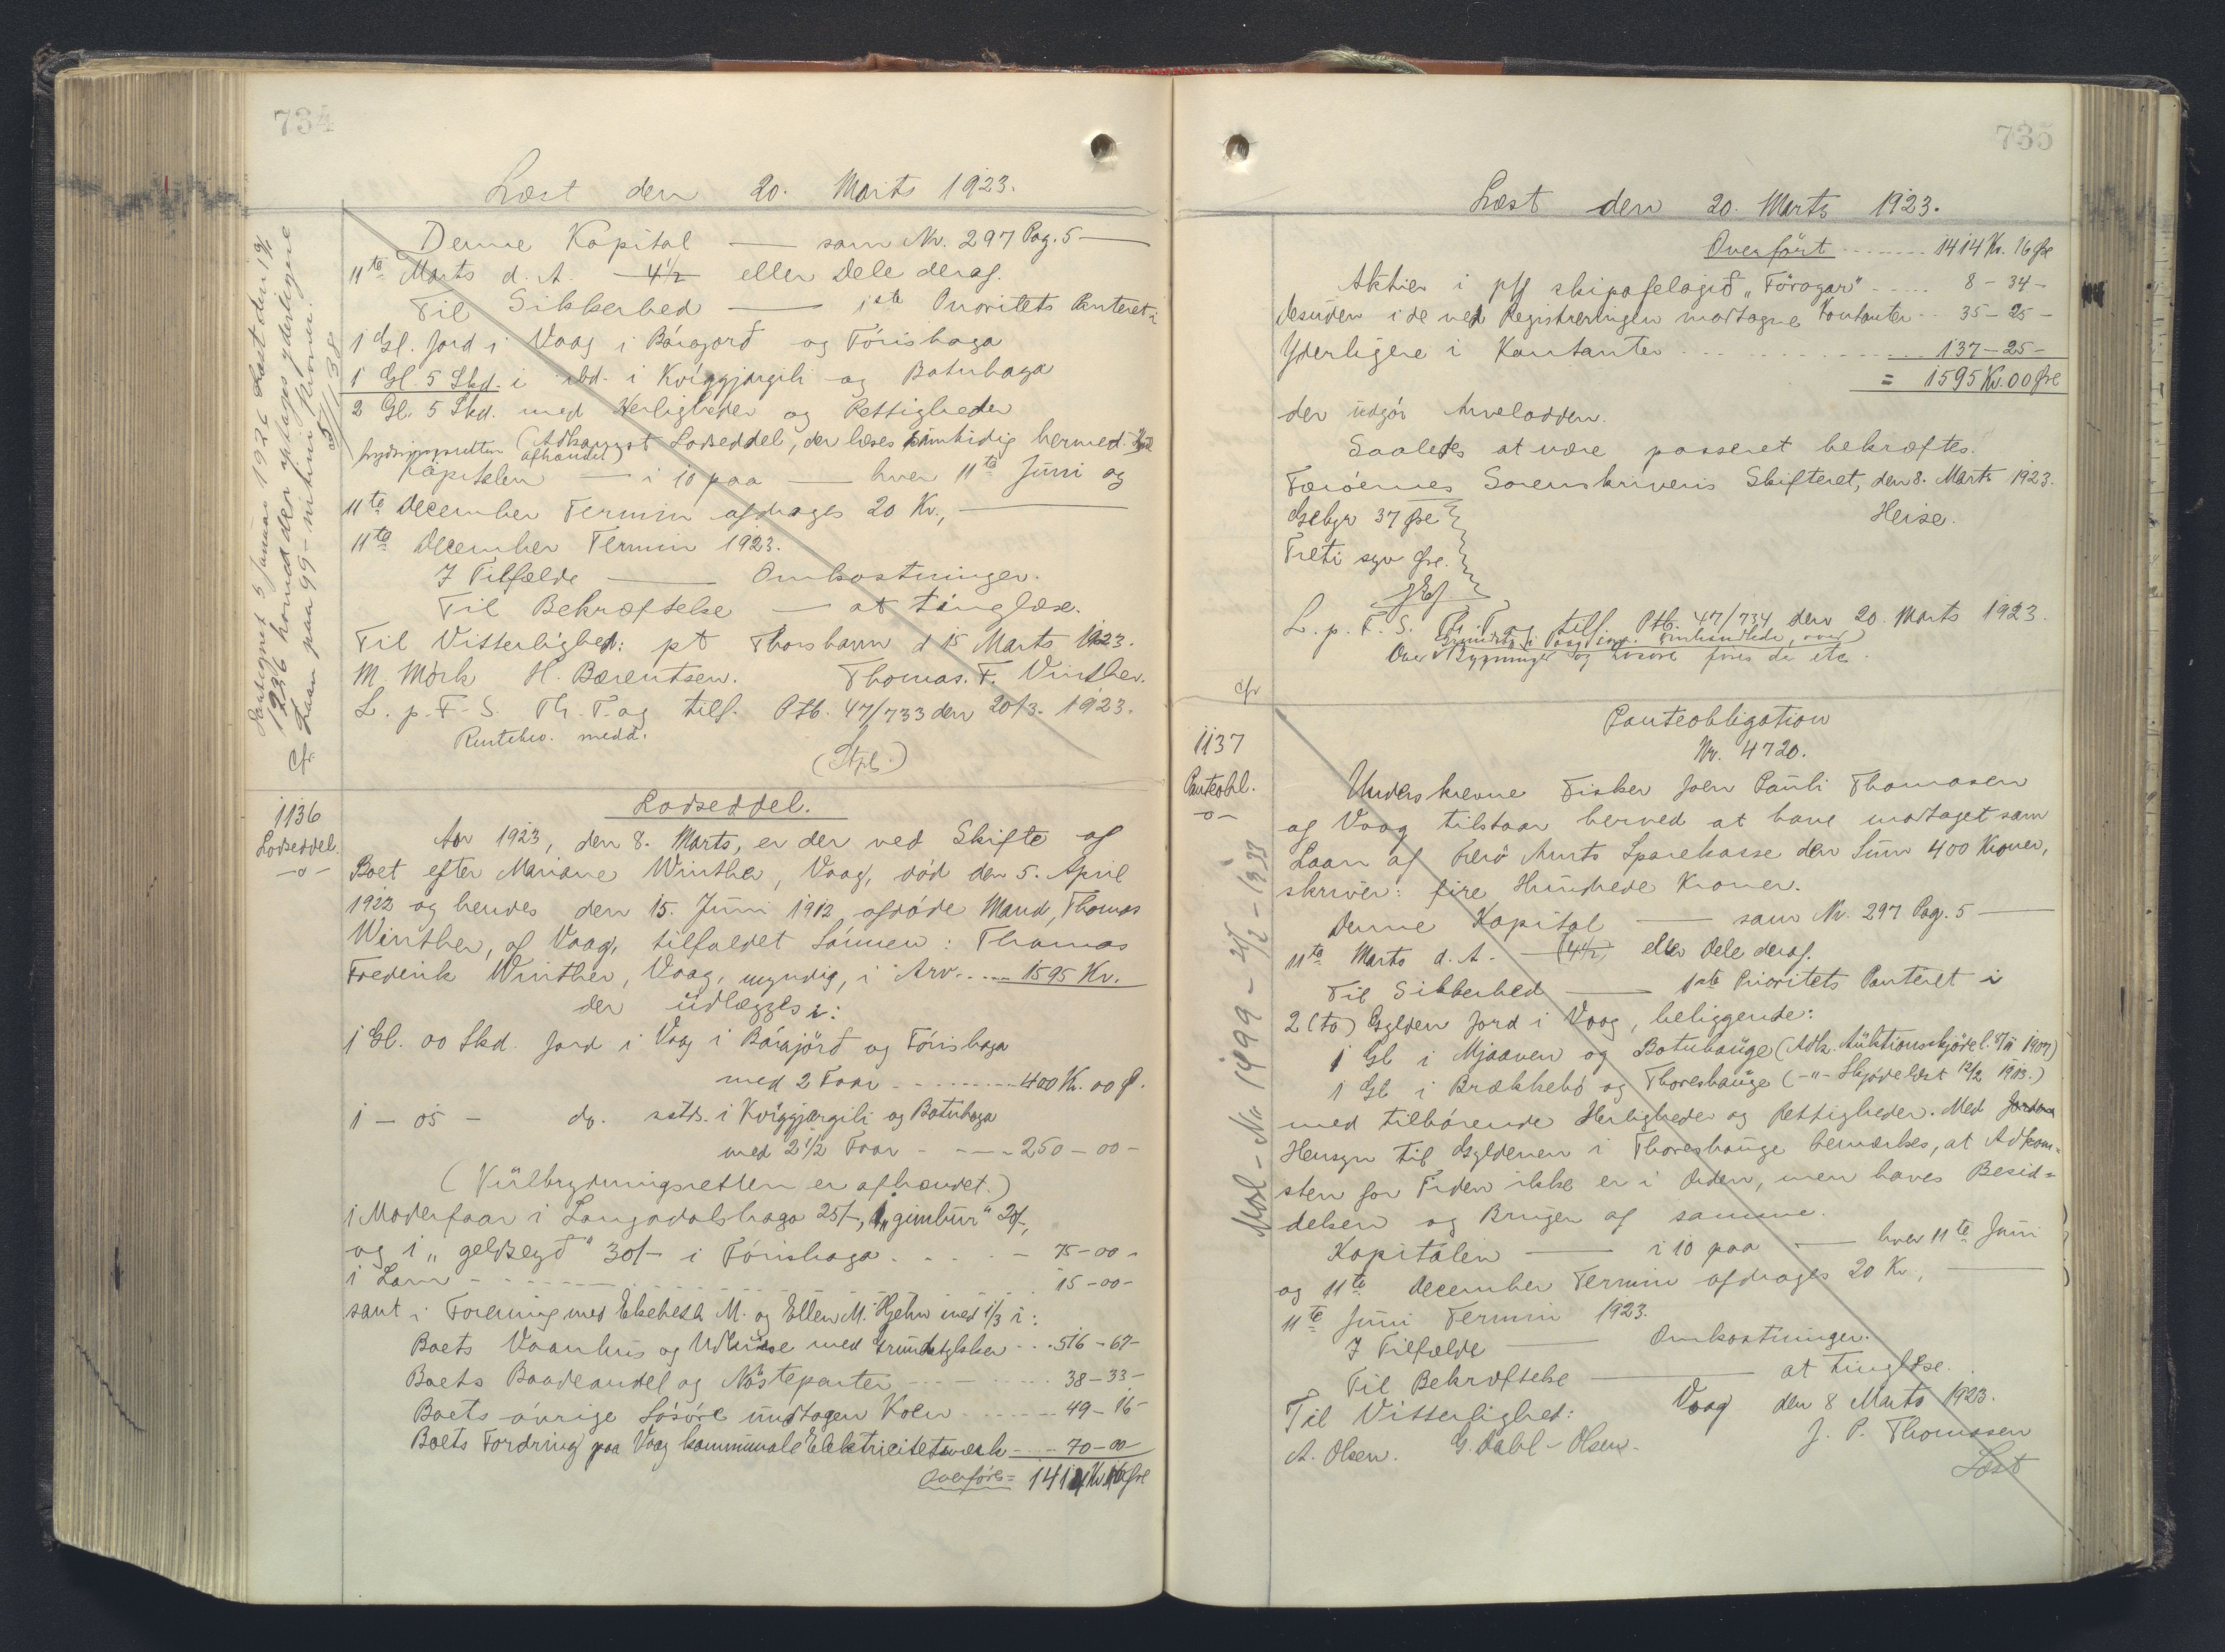 734
Læst den 20. Marts 1923.
Denne Kapital — som Nr. 297 Pag. 5 —
11te Marts d. A. — 4½ eller Dele deraf.
Til Sikkerhed — 1ste Prioritets Panteret i
1 Gl. Jord i Vaag i Bárajørð og Fórishaga
1 Gl. 5 Skd. i ibd. i Kviggjargili og Botnhaga
2 Gl. 5 Skd. med Herligheder og Rettigheder
brydningsretten afhændet) (Adkomst Lodseddel, der læses samtidig hermed.
Kapitalen — i 10 paa — hver 11te Juni og
11te December Termin afdrages 20 Kr., —
11te December Termin 1923.
I Tilfælde — Omkostninger.
Til Bekræftelse — at tinglæse.
Til Vitterlighed: pt Thorshavn d 15 Marts 1923.
M. Mörk H. Bærentsen. Thomas. F. Winther.
L. p. F. S. Th. T. og tilf. Ptb. 47/733 den 20/3. 1923.
Rentebev. medd.
(Stpl.)
1136
Lodseddel.
-o-
Lodseddel.
Aar 1923, den 8. Marts, er der ved Skifte af
Boet efter Mariane Winther, Vaag, död den 5. April
1922 og hendes den 15. Juni 1912 afdöde Mand, Thomas
Winther, af Vaag, tilfaldet Sönnen: Thomas
Frederik Winther, Vaag, myndig, i Arv..... 1595 Kr.
der udlægges i:
1 Gl. 00 Skd. Jord i Vaag i Bárajörð og Fórishaga
med 2 Faar ......... 400 Kr. 00 Ø.
1 - 05 - do. sstds. i Kviggjargili og Botnhaga
med 2 1/2 Faar - - - - 250 - 00 -
(Kulbrydningsretten er afhændet.)
1 Moderfaar i Langadalshaga 25/-, 1 "gimbur" 20/-,
og 1 "geldseyð" 30/- i Fórishaga . . . - 75 - 00 -
1 Lam - - - - - - - 15 - 00 -
samt i Forening med Elsebeth M. og Ellen M. Hjelm med 1/3 i:
Boets Vaanhus og Udhuse med Grundstykker ... 516 - 67 -
Boets Baadeandel og Nösteparter ... 38 - 33 -
Boets övrige Lösöre undtagen Koen ... 49 - 16 -
Boets Fordring paa Vaag kommunale Elektricitetsværk ... 70 - 00
Overføres = 1414 Kr 16 Øre
735
Læst den 20. Marts 1923.
Overfört ....... 1414 Kr. 16 Øre
Aktier i p/f skipafelagið "Föroyar" ..... 8 - 34 -
desuden i de ved Registreringen modtagne Kontanter .. 35 - 25 -
Yderligere i Kontanter ............ 137 - 25 -
= 1595 Kr. 00 Øre
der udgör Arvelodden.
Saaledes at være passeret bekræftes.
Færöernes Sorenskriveris Skifteret, den 8. Marts 1923.
Gebyr 37 Øre Heise.
Treti syv Øre.
L. p. F. S. Th. T. og tilf. Ptb. 47/734 den 20. Marts 1923.
Over Bygninger og Lösöre föres da etc.
cfr
1137
Panteobl.
-o-
Mosl - Nr 1499 - 21/2 - 1933
Panteobligation
Nr. 4720.
Underskrevne Fisker Joen Pauli Thomasen
af Vaag tilstaar herved at have modtaget som
Laan af Færö Amts Sparekasse den Sum 400 Kroner,
skriver: fire Hundrede Kroner.
Denne Kapital — som Nr. 297 Pag. 5 —
11te Marts d. A. — (4½) eller Dele deraf.
Til Sikkerhed — 1ste Prioritets Panteret i
2 (to) Gylden Jord i Vaag, beliggende:
1 Gl i Mjaaven og Botnhauge (Adk. Auktionsskjöde l. 1907)
1 Gl i Brækkebö og Thoreshauge ( -"- Skjöde læst 12/2 1913.)
med tilhörende Herligheder og Rettigheder. Med
Hensyn til Gyldenen i Thoreshauge bemærkes, at Adkom=
sten for Tiden ikke er i Orden, men haves Besid=
delsen og Brugen af samme.
Kapitalen — i 10 paa — hver 11te Juni
og 11te December Termin afdrages 20 Kr., —
11te Juni Termin 1923.
I Tilfælde — Omkostninger.
Til Bekræftelse — at tinglæse.
Til Vitterlighed: Vaag den 8 Marts 1923.
A. Olsen. G. Dahl-Olsen. J. P. Thomasen
Læst